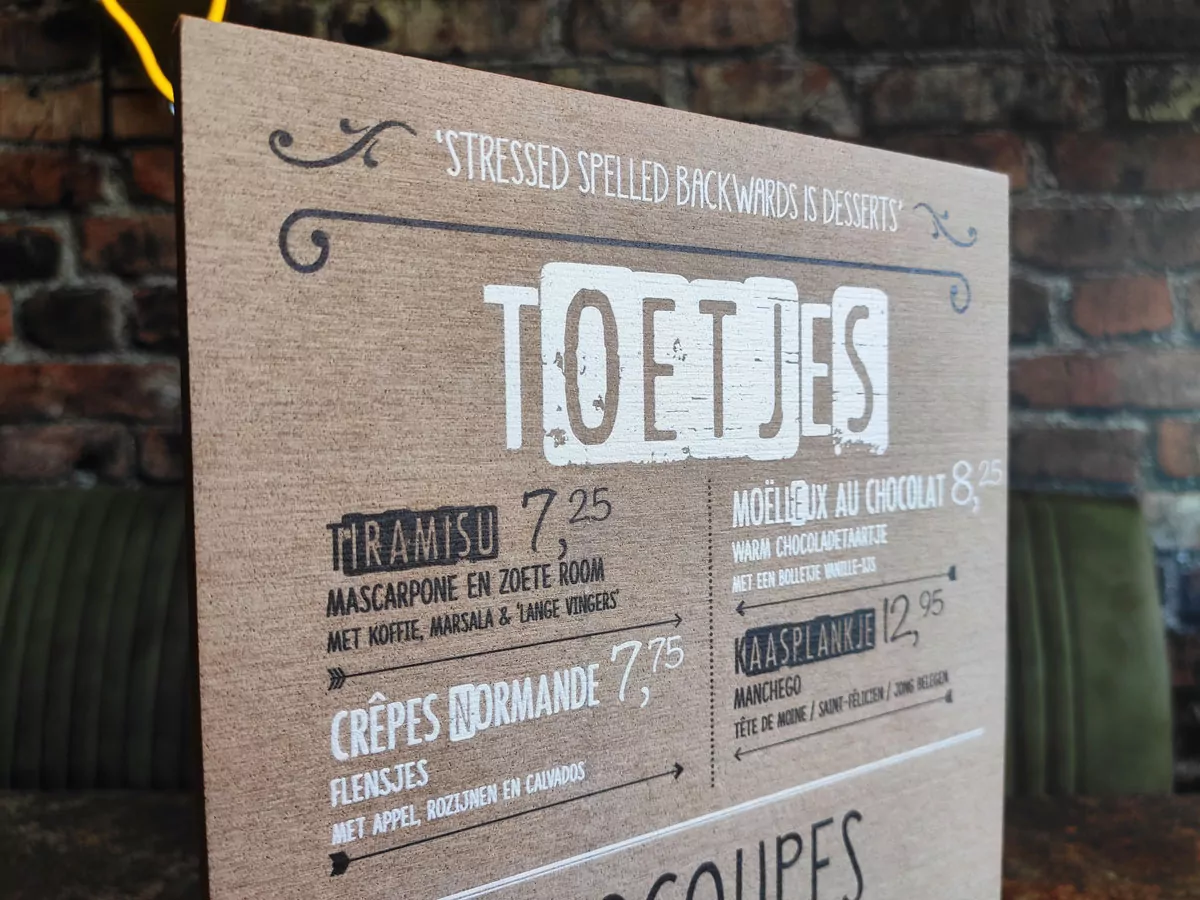 'STRESSED SPELLED BACKWARDS IS DESSERTS'
TOETJES
TIRAMISU 7,25
MASCARPONE EN ZOETE ROOM
MET KOFFIE, MARSALA & 'LANGE VINGERS'
CRÊPES NORMANDE 7,75
FLENSJES
MET APPEL, ROZIJNEN EN CALVADOS
MOËLLEUX AU CHOCOLAT 8,25
WARM CHOCOLADETAARTJE
MET EEN BOLLETJE VANILLE-IJS
KAASPLANKJE 12,95
MANCHEGO
TÊTE DE MOINE / SAINT-FÉLICIEN / JONG BELEGEN